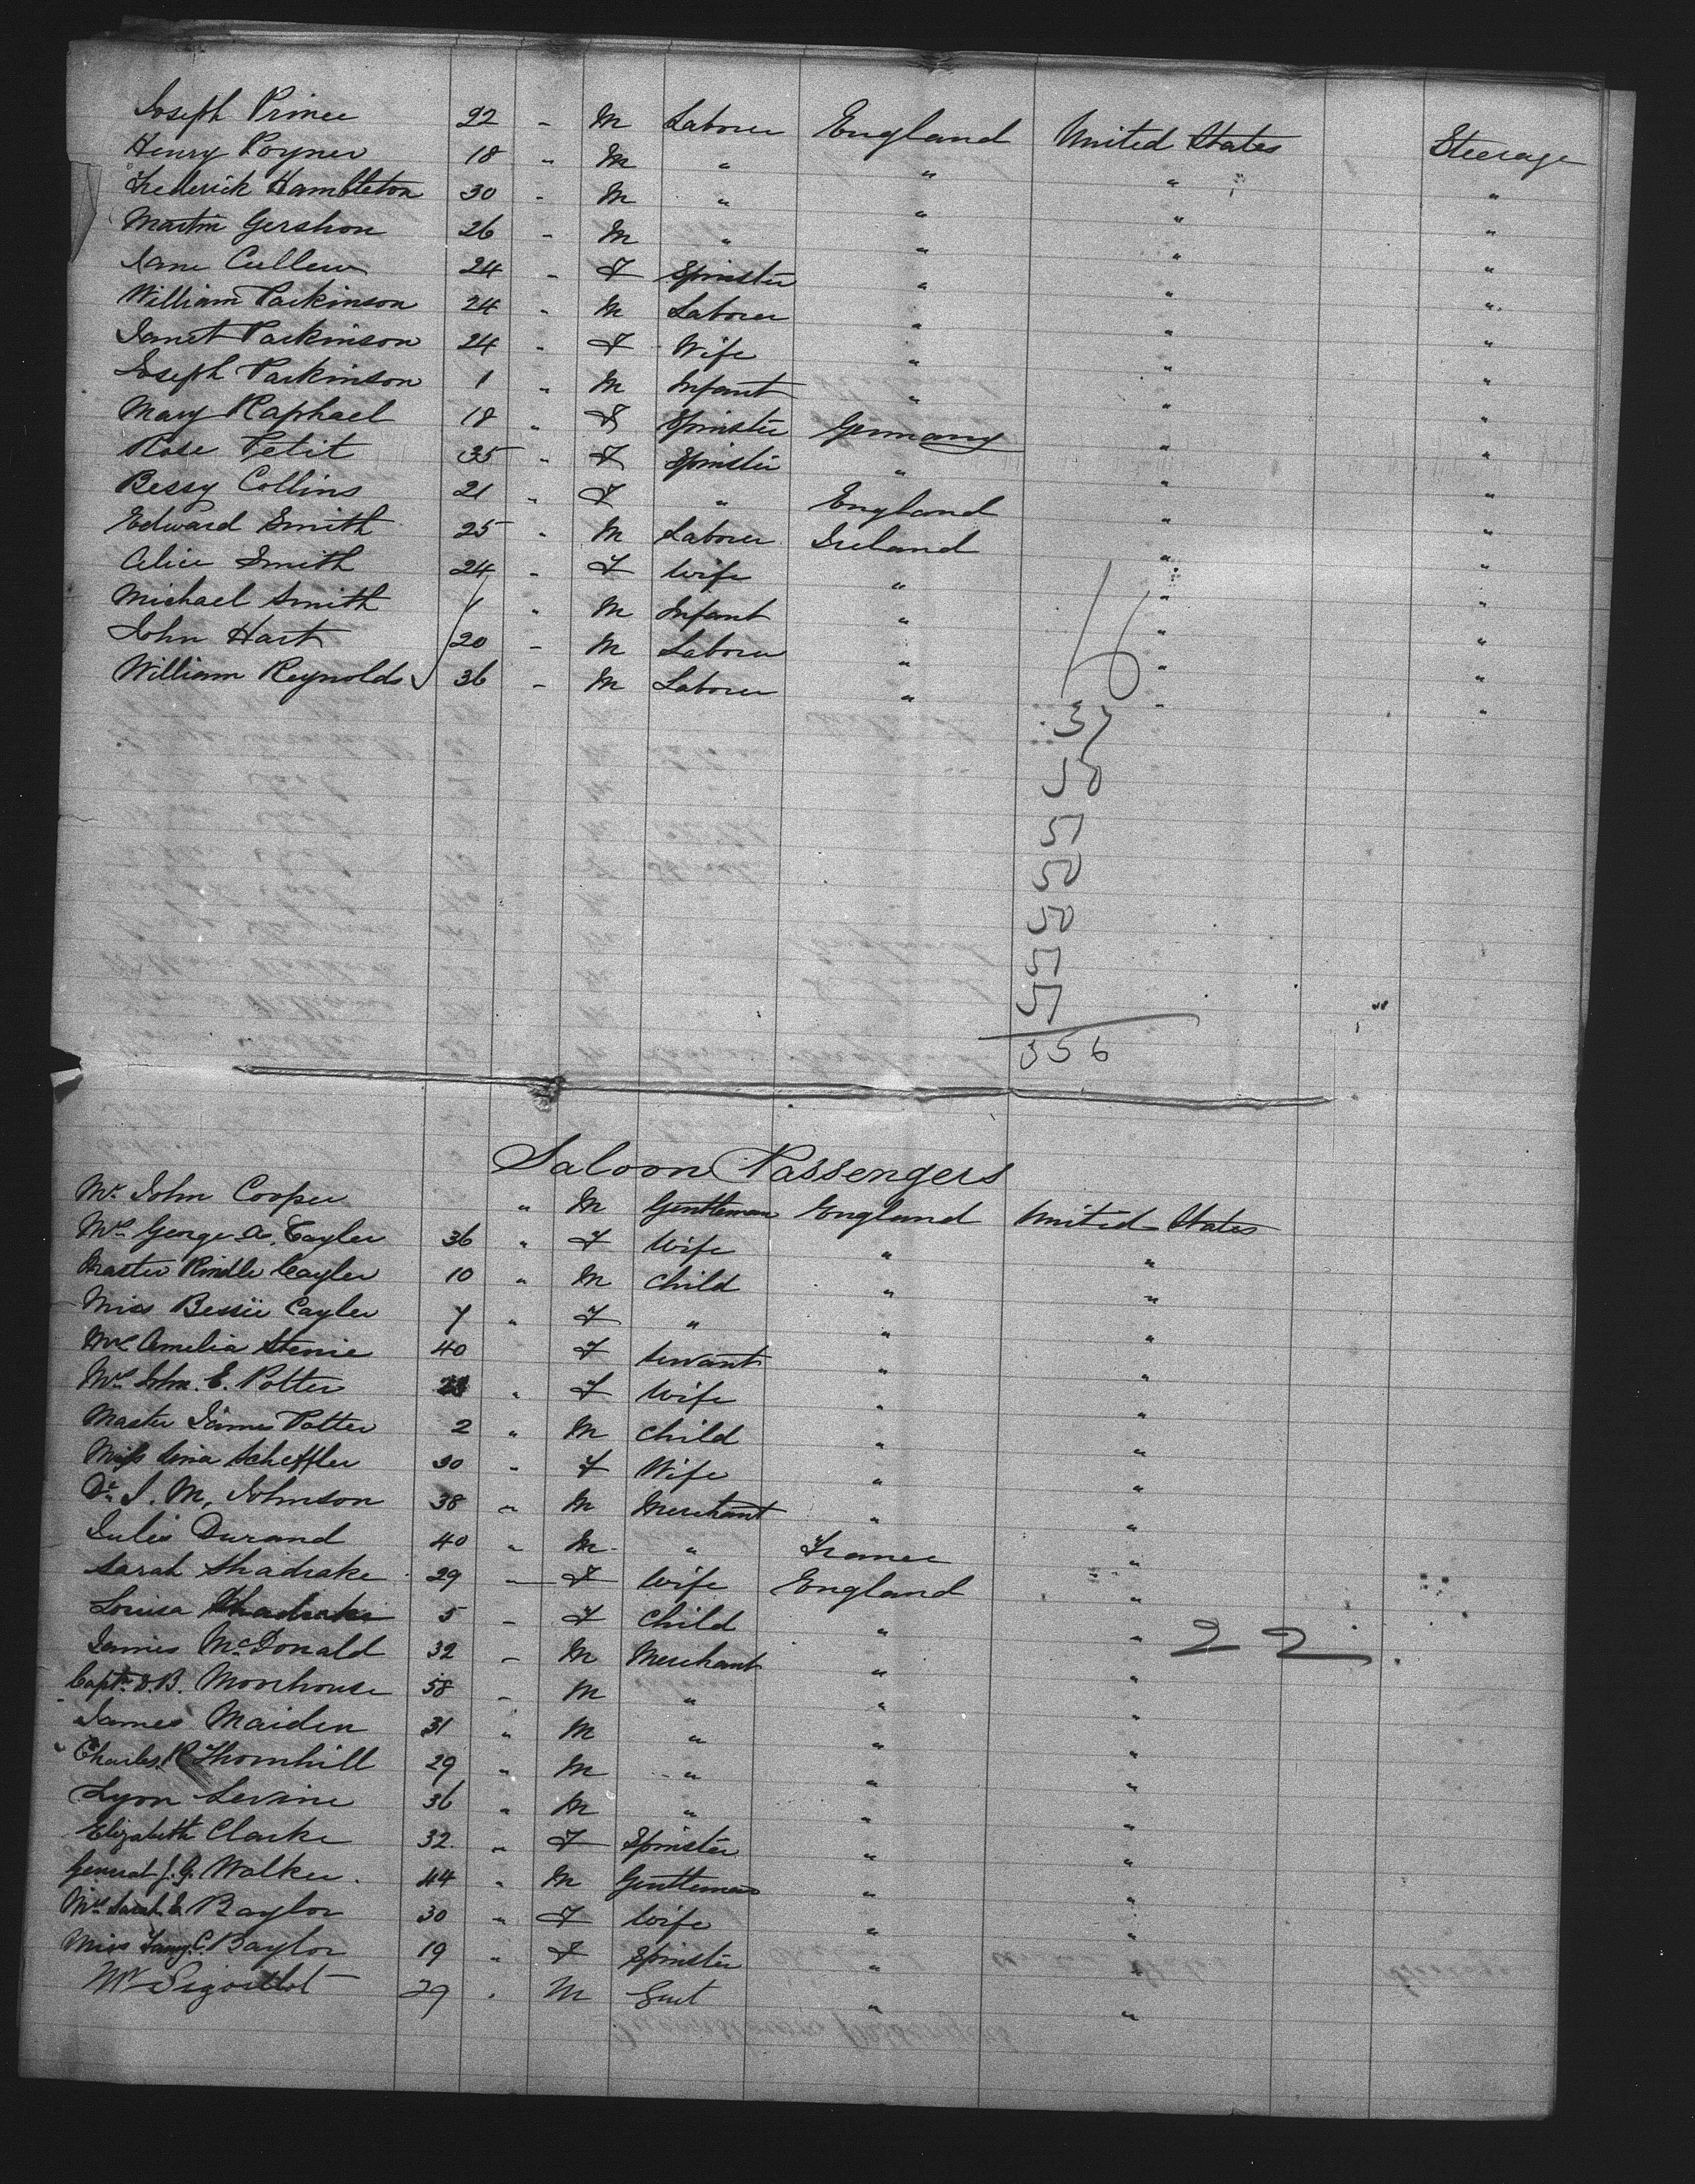 Joseph Prince 22 - M Laborer England United States Steerage
Henry Poyner 18 " M " " " "
Frederick Hambleton 30 - M " " " "
Martin Gershon 26 - M " " " "
Jane Cullen 24 - F Spinster " " "
William Parkinson 24 " M Laborer " " "
Janet Parkinson 24 " F Wife " " "
Joseph Parkinson 1 " M Infant " " "
Mary Raphael 18 " F Spinster Germany " "
Rose Petit 35 " F Spinster " " "
Bessy Collins 21 " F " England " "
Edward Smith 25 " M Laborer Ireland " "
Alice Smith 24 - F Wife " " "
Michael Smith 1 " M Infant " " "
John Hart 20 - M Laborer " " "
William Reynolds 36 - M Laborer " " "
16
37
50
57
50
50
57
57
356
Saloon Passengers
Mr. John Cooper " M Gentleman England United States
Mrs. George A. Cayler 36 " F Wife " "
Master Rindle Cayler 10 " M Child " "
Miss Bessie Cayler 7 " F " " "
Mrs Amelia 40 F Servant " "
Mrs. John. E. Potter " F Wife " "
Master James Potter 2 " M Child " "
Miss Lina Scheffler 30 " F Wife " "
Dr. J. M. Johnson 38 " M Merchant " "
Jules Durand 40 " M " France "
Sarah Shadrake 29 - F Wife England "
Louisa Shadrake 5 - F Child " "
James McDonald 32 - M Merchant " "
22
Capt. D.B. Moorhouse 58 - M " " "
James Maiden 31 " M " " "
Charles R Thornhill 29 " M " " "
Lyon Levine 36 " M " " "
Elizabeth Clarke 32. " F Spinster " "
General J. G. Walker. 44 " M Gentleman " "
Mrs Sarah E Baylor 30 " F Wife " "
Miss Fany. C. Baylor 19 " F Spinster " "
Mr 29 " M Gent " "